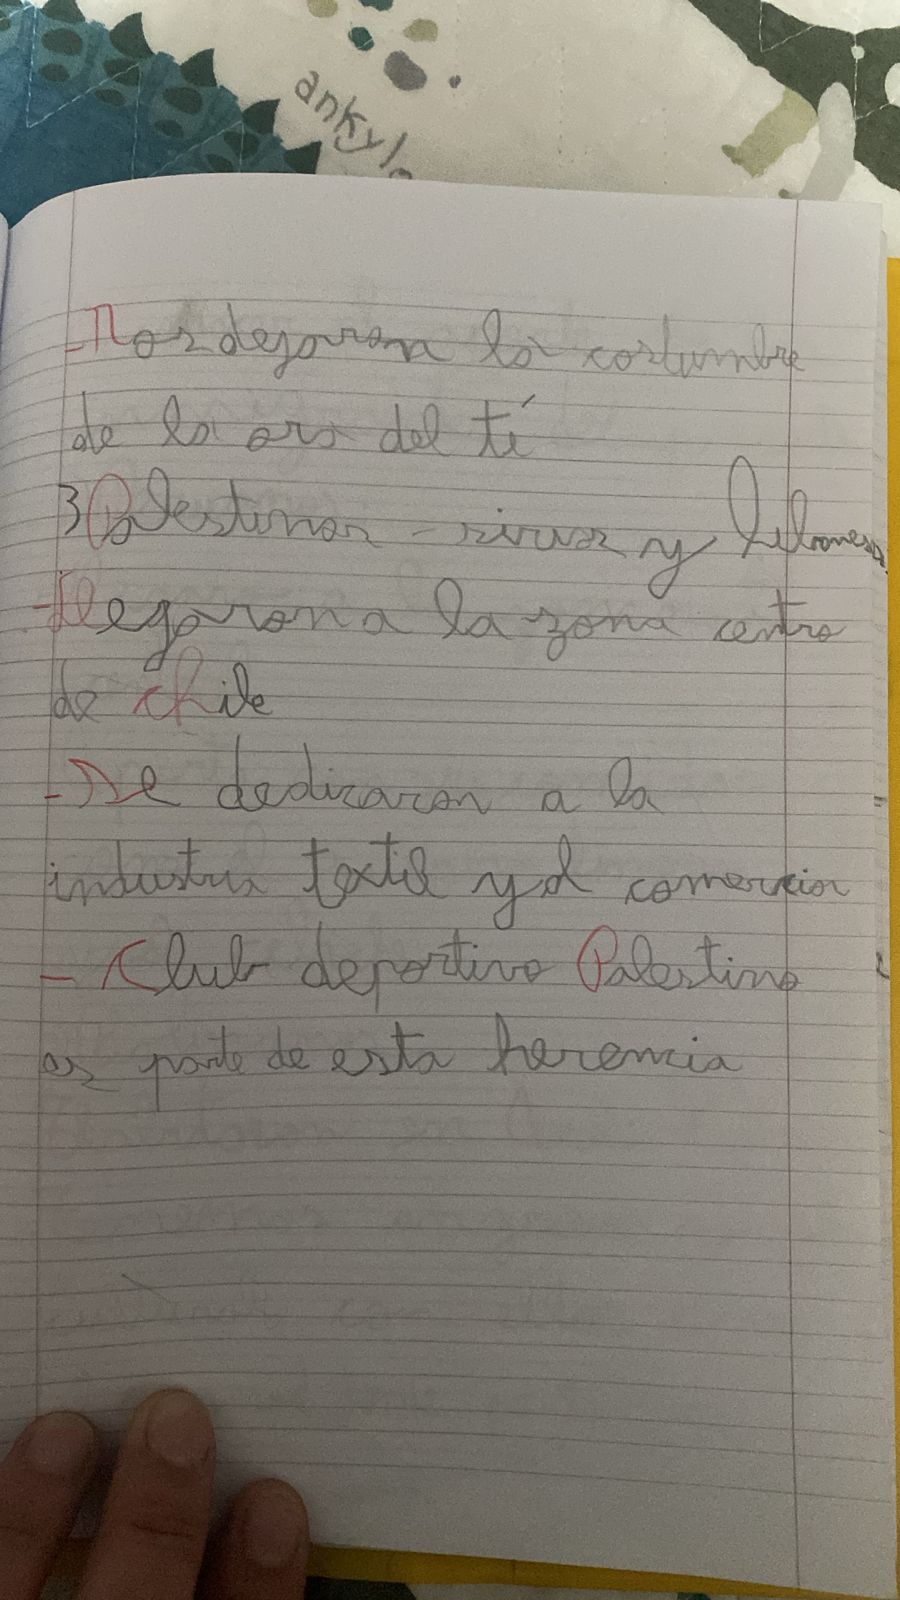 ankylo
-Nos dejaron la costumbre
de la ora del té
3 Palestinos - sirios y libaneses.
-Llegaron a la zona centro
de Chile
-Se dedicaron a la
industria textil y al comercio
- Club deportivo Palestino
es parte de esta herencia